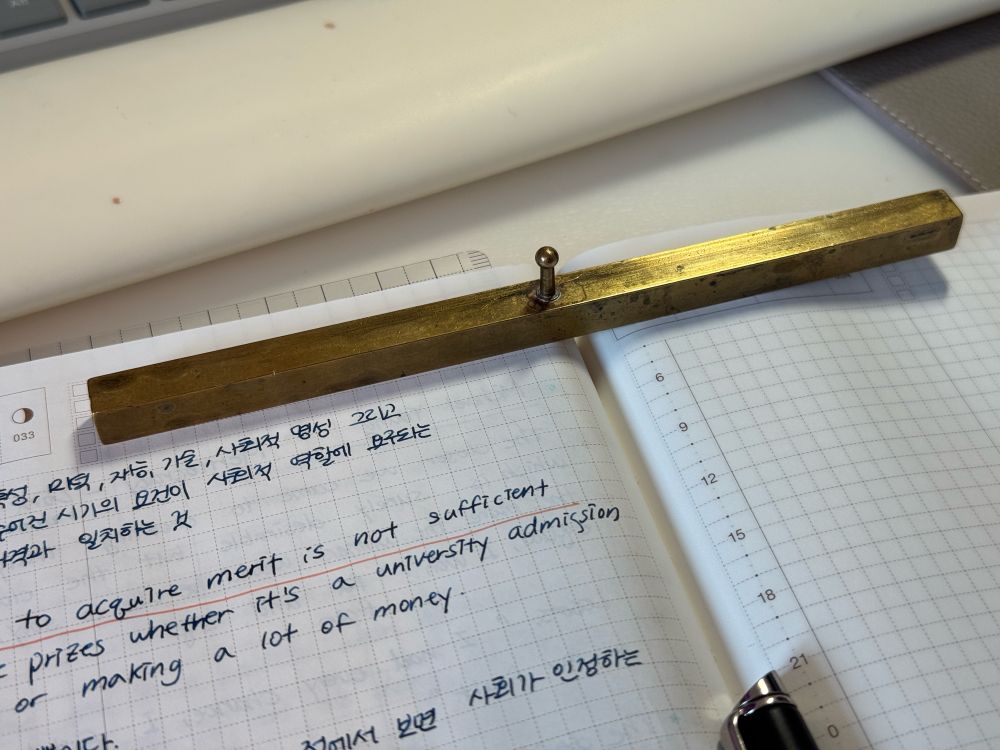 033
특성, 미덕, 재능, 기술, 사회적 명성 그리고
주어진 시기의 요건이 사회적 역할에 요구되는
자격과 일치하는 것
to acquire merit is not sufficient
prizes whether it's a university admission
or making a lot of money.
점에서 보면 사회가 인정하는
6
9
12
15
18
21
0